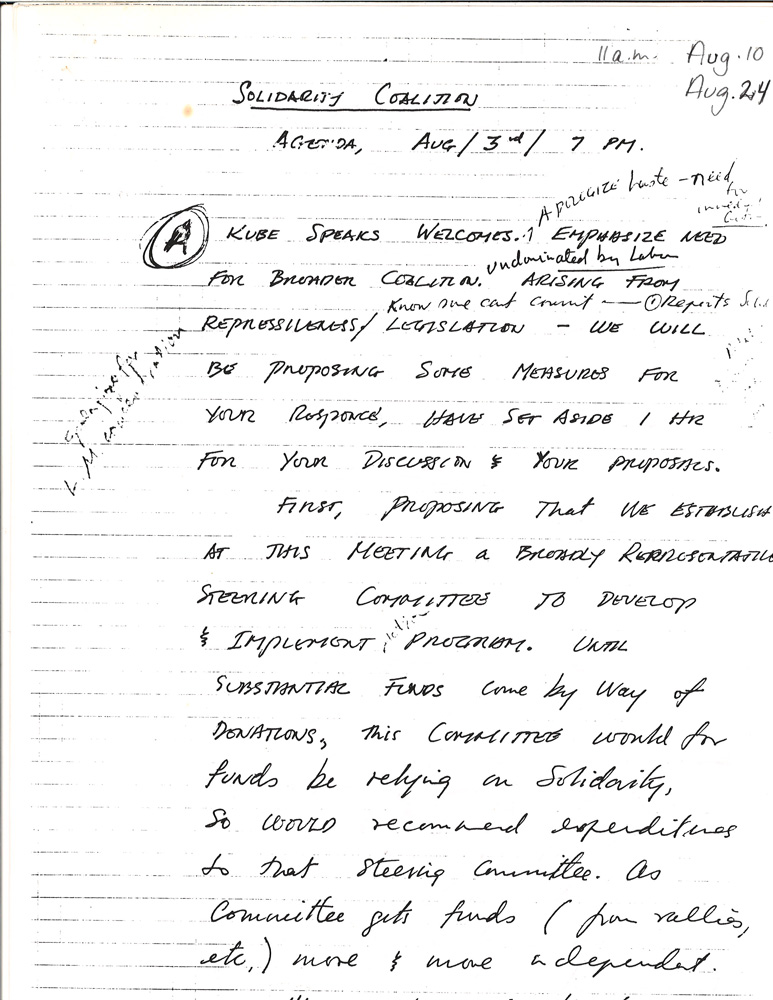 11 a.m. Aug. 10
Aug. 24
SOLIDARITY COALITION
AGENDA, AUG / 3rd / 7 PM.
APOLOGIZE haste - need
for
A KUBE SPEAKS WELCOMES. EMPHASIZE NEED
undominated by Labour
FOR BROADER COALITION. ARISING FROM
Know some cant commit — ① Reports
REPRESSIVENESS / LEGISLATION - WE WILL
BE PROPOSING SOME MEASURES FOR
YOUR RESPONCE, HAVE SET ASIDE 1 HR
FOR YOUR DISCUSSION & YOUR PROPOSALS.
Apologize for
FIRST, PROPOSING That WE ESTABLISH
AT THIS MEETING a BROADLY REPRESENTATIVE
STEERING COMMITTEE TO DEVELOP
action
& IMPLEMENT PROGRAM. UNTIL
SUBSTANTIAL FUNDS come by way of
DONATIONS, this COMMITTEE would for
funds be relying on Solidarity,
So WOULD recommend expenditures
to that Steering Committee. As
Committee gets funds (from rallies,
etc.,) more & more independent.